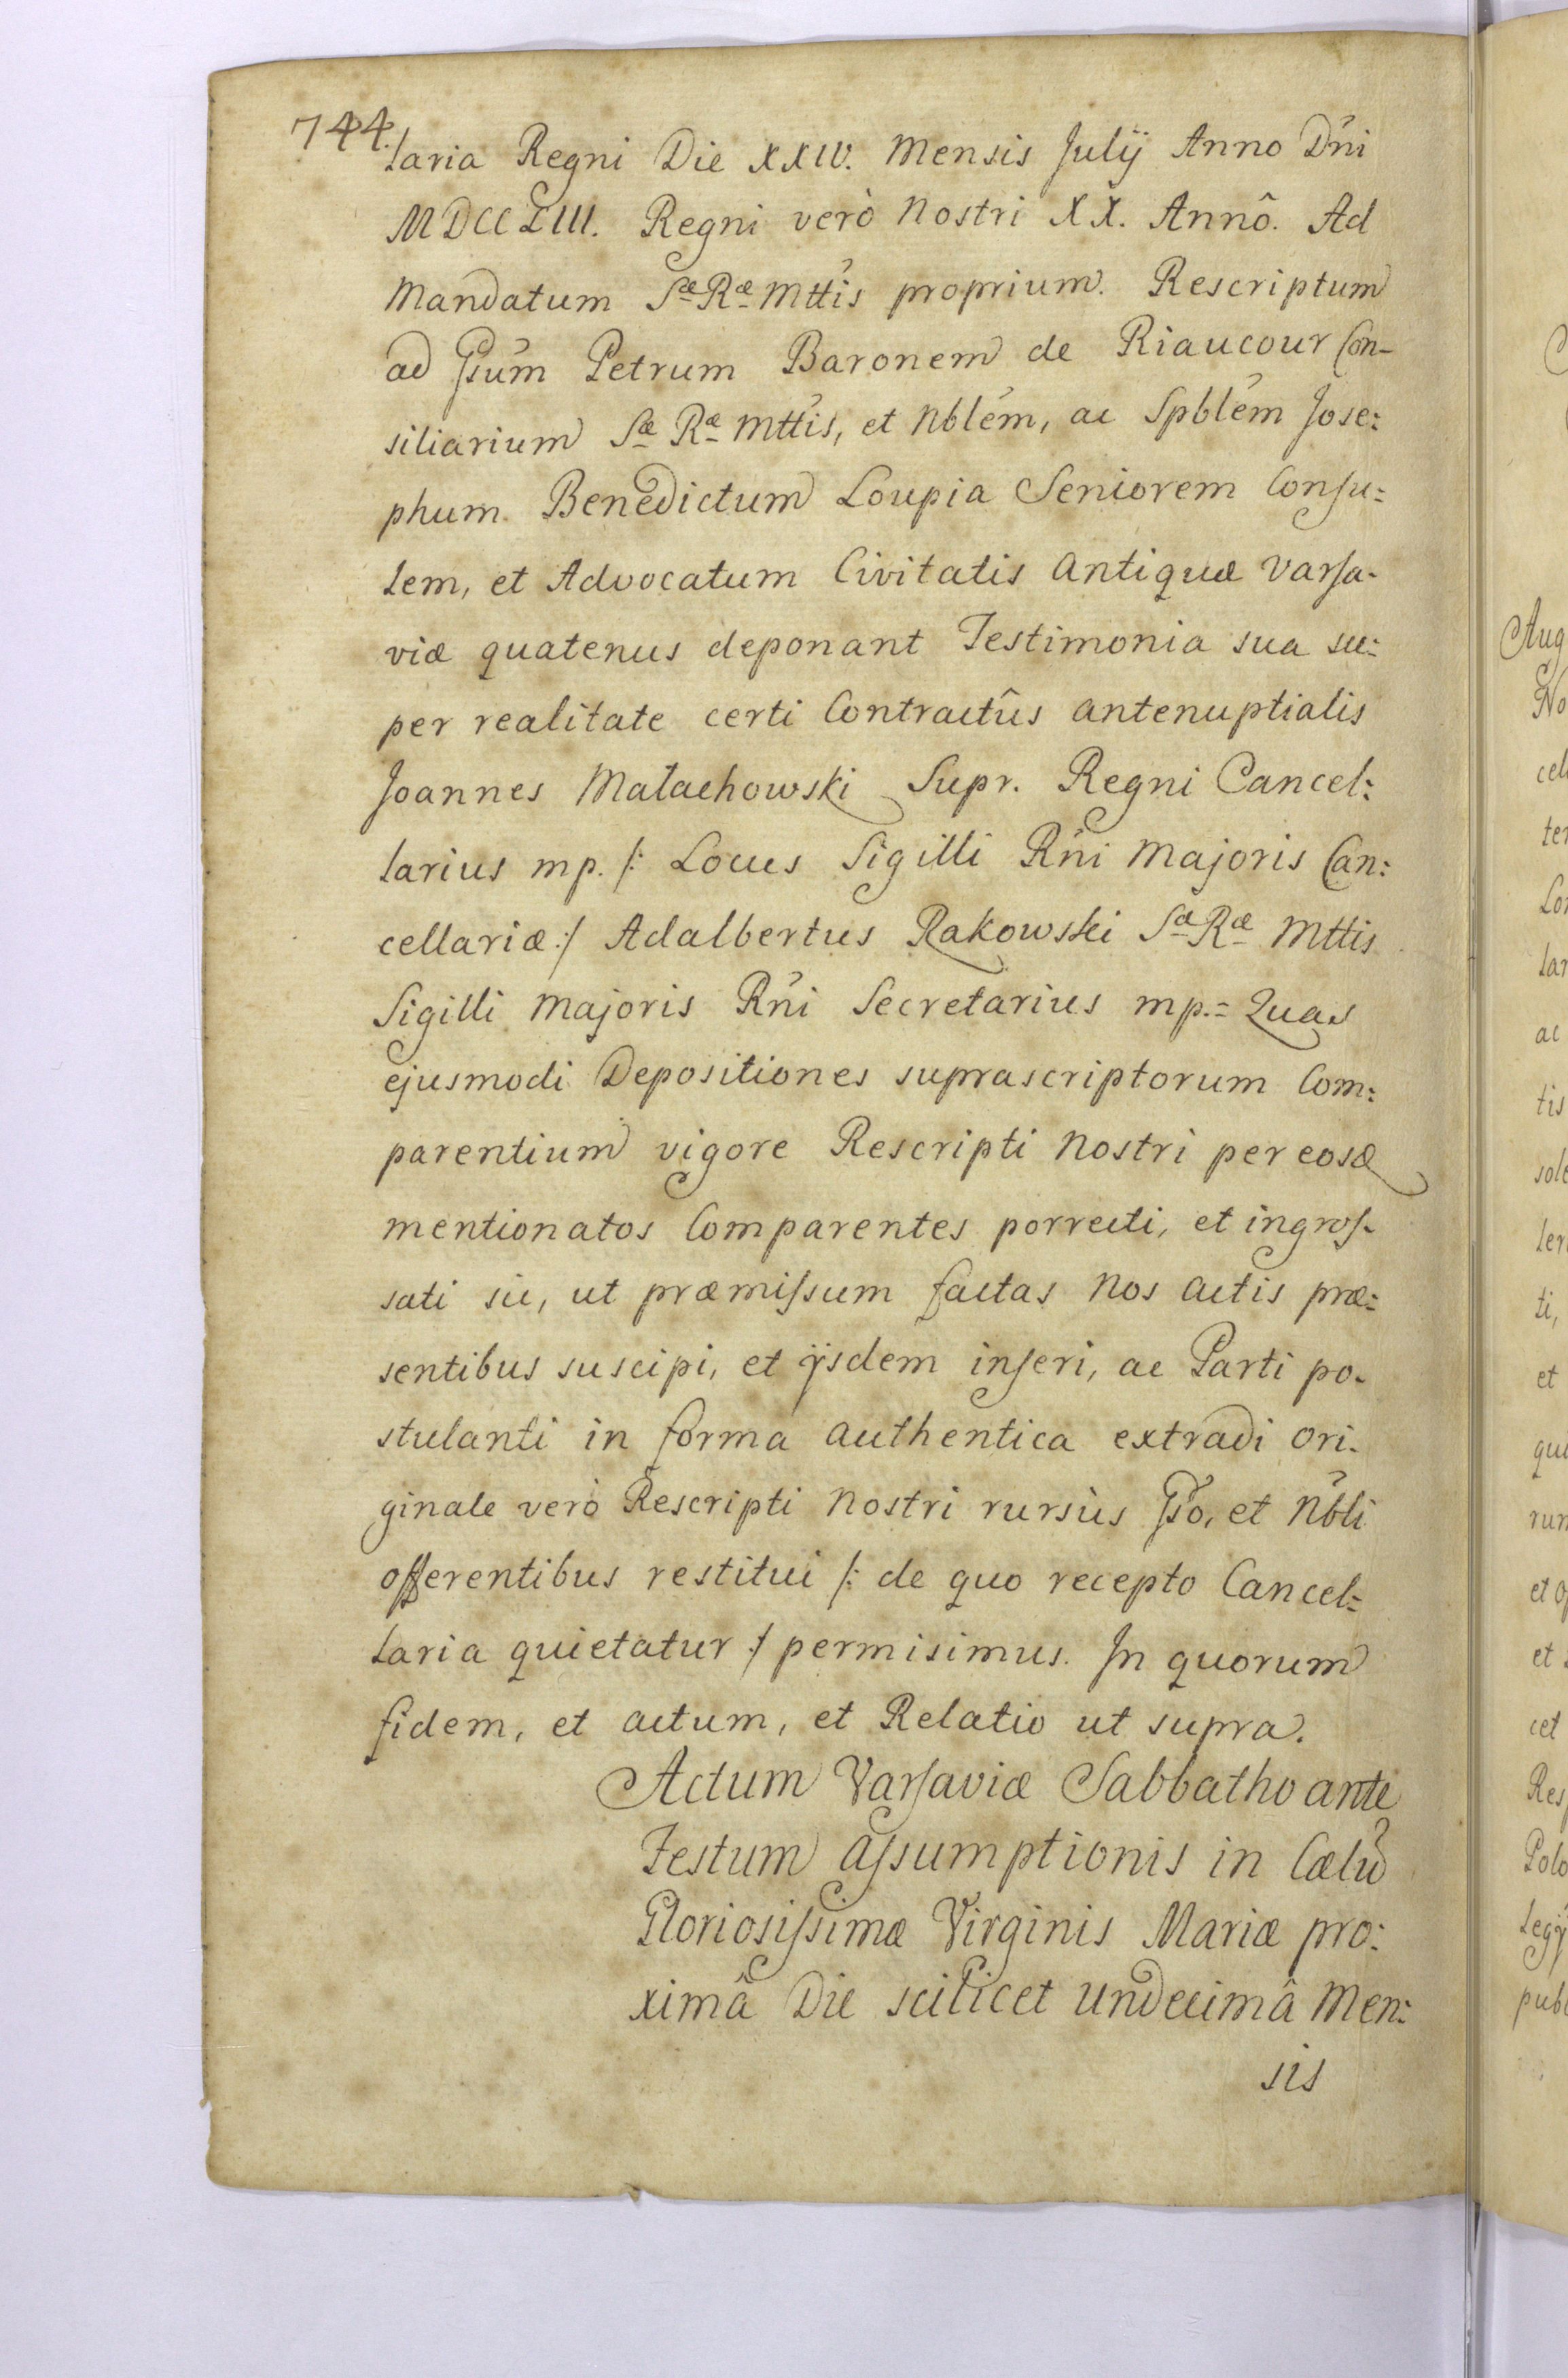 744.
laria Regni Die XXIV. Mensis Julij Anno Dni
MDCCLIII. Regni verò Nostri XX. Annô. Ad
Mandatum Sæ Ræ Mttis proprium. Rescriptum
ad Gsum Petrum Baronem de Riaucour Con-
siliarium Sæ Ræ Mttis, et Nblem, ac Spblem Jose:
phum Benedictum Loupia Seniorem Consu:
lem, et Advocatum Civitatis Antiquæ Varsa-
viæ quatenus deponant Testimonia sua su:
per realitate certi Contractûs antenuptialis
Joannes Małachowski Supr. Regni Cancel:
larius mp. /: Locus Sigilli Rni Majoris Can:
cellariæ :/ Adalbertus Rakowski Sæ Ræ Mttis
Sigilli Majoris Rni Secretarius mp.= Quas
ejusmodi Depositiones suprascriptorum Com:
parentium vigore Rescripti Nostri per eosd
mentionatos Comparentes porrecti, et ingros-
sati sic, ut præmissum factas Nos Actis præ:
sentibus suscipi, et ijsdem inseri, ac Parti po-
stulanti in forma authentica extradi ori-
ginale verò Rescripti Nostri rursùs Gso, et Nbli
offerentibus restitui /: de quo recepto Cancel:
laria quietatur :/ permisimus. In quorum
fidem, et actum, et Relatio ut supra.
Actum Varsaviæ Sabbatho ante
Festum Assumptionis in Cælu
Gloriosissimæ Virginis Mariæ pro:
ximâ Die scilicet undecimâ Men:
sis